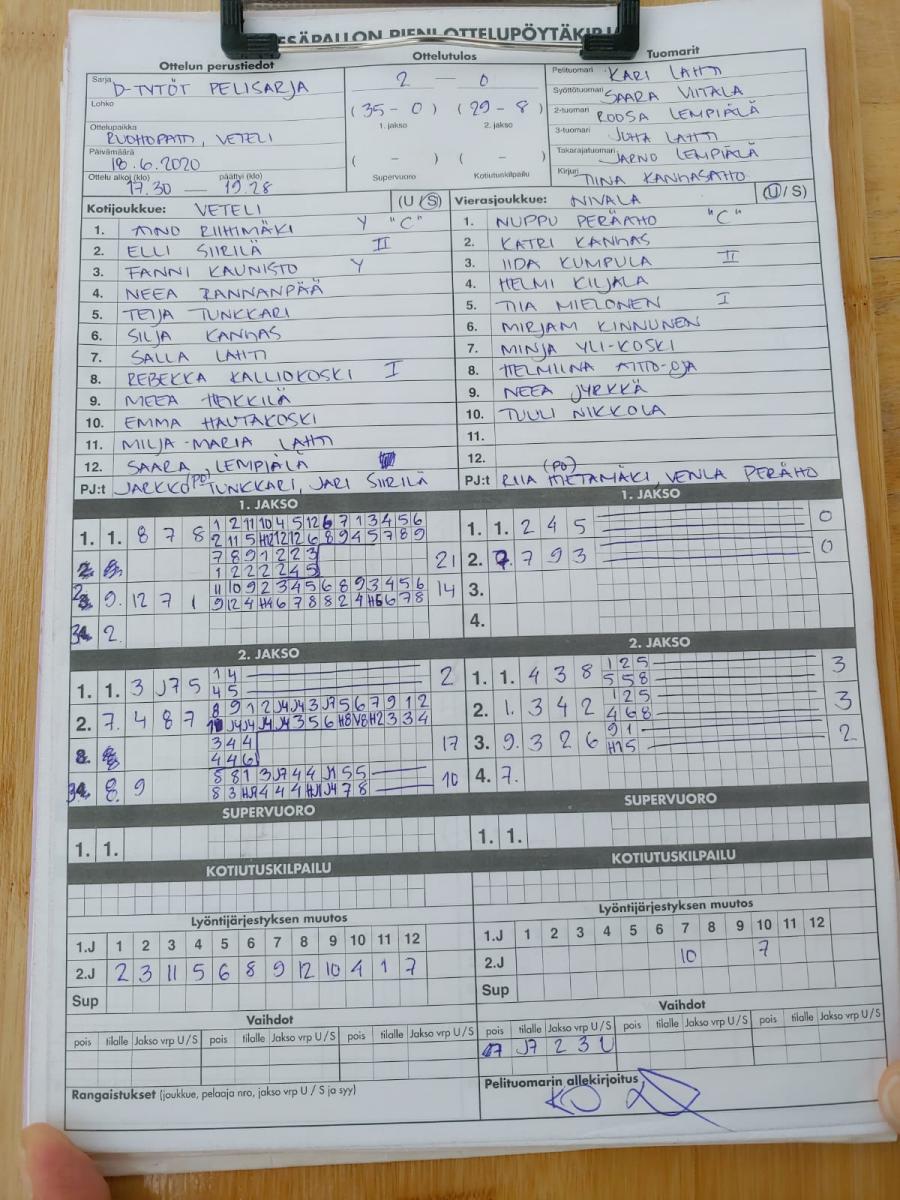 PESÄPALLON PIENI OTTELUPÖYTÄKIRJA
Ottelun perustiedot
Sarja D-TYTÖT PELISARJA
Lohko
Ottelupaikka RUOHOPATTI, VETELI
Päivämäärä 18.6.2020
Ottelu alkoi (klo) päättyi (klo)
17.30 — 19.28
Ottelutulos
2 — 0
(35 - 0) (29 - 8)
1. jakso 2. jakso
( - ) ( - )
Supervuoro Kotiutuskilpailu
Tuomarit
Pelituomari KARI LAHTI
Syöttötuomari SAARA VIITALA
2-tuomari ROOSA LEMPIÄLÄ
3-tuomari JUHA LAHTI
Takarajatuomari JARNO LEMPIÄLÄ
Kirjuri TIINA KANNASAHO
Kotijoukkue: VETELI (U / S)
1. AINO RIIHIMÄKI Y "C"
2. ELLI SIIRILÄ II
3. FANNI KAUNISTO Y
4. NEEA RANNANPÄÄ
5. TEIJA TUNKKARI
6. SILJA KANNAS
7. SALLA LAHTI
8. REBEKKA KALLIOKOSKI I
9. MEEA HEIKKILÄ
10. EMMA HAUTAKOSKI
11. MILJA-MARIA LAHTI
12. SAARA LEMPIÄLÄ
PJ:t JARKKO (PJ) TUNKKARI, JARI SIIRILÄ
Vierasjoukkue: NIVALA (U / S)
1. NUPPU PERÄAHO "C"
2. KATRI KANNAS
3. IIDA KUMPULA II
4. HELMI KILJALA
5. TIIA MIELONEN I
6. MIRJAM KINNUNEN
7. MINJA YLI-KOSKI
8. HELMIINA AITTO-OJA
9. NEEA JYRKKÄ
10. TUULI NIKKOLA
11.
12.
PJ:t RIIA (PJ) HIETAMÄKI, VENLA PERÄHO
1. JAKSO
1. 1. 8 7 8 1 2 11 10 4 5 12 6 7 1 3 4 5 6
2 11 5 H12 12 12 6 8 9 4 5 7 8 9
7 8 9 1 2 2 3
1 2 2 2 2 4 5 21
2. 9. 12 7 1 11 10 9 2 3 4 5 6 8 9 3 4 5 6
9 12 4 H4 6 7 8 8 2 4 H6 6 7 8 14
3. 2.
1. JAKSO
1. 1. 2 4 5 0
2. 7. 7 9 3 0
3.
4.
2. JAKSO
1. 1. 3 J7 5 1 4
4 5 2
2. 7. 4 8 7 8 9 1 2 J4 J4 3 J7 5 6 7 9 1 2
J4 J4 J4 J4 3 5 6 H8 V8 H2 3 3 4
3 4 4
4 4 6 17
3. 8. 9 8 8 1 3 J7 4 4 J1 5 5
8 3 H J1 4 4 4 H J1 J4 7 8 10
2. JAKSO
1. 1. 4 3 8 1 2 5
5 5 8 3
2. 1. 3 4 2 1 2 5
4 6 8 3
3. 9. 3 2 6 9 1
H1 5 2
4. 7.
SUPERVUORO
1. 1.
SUPERVUORO
1. 1.
KOTIUTUSKILPAILU
KOTIUTUSKILPAILU
Lyöntijärjestyksen muutos
1.J 1 2 3 4 5 6 7 8 9 10 11 12
2.J 2 3 11 5 6 8 9 12 10 4 1 7
Sup
Lyöntijärjestyksen muutos
1.J 1 2 3 4 5 6 7 8 9 10 11 12
2.J 10 7
Sup
Vaihdot
pois tilalle Jakso vrp U / S pois tilalle Jakso vrp U / S pois tilalle Jakso vrp U / S
Vaihdot
pois tilalle Jakso vrp U / S pois tilalle Jakso vrp U / S pois tilalle Jakso vrp U / S
J7 2 3 U
Rangaistukset (joukkue, pelaaja nro, jakso vrp U / S ja syy)
Pelituomarin allekirjoitus